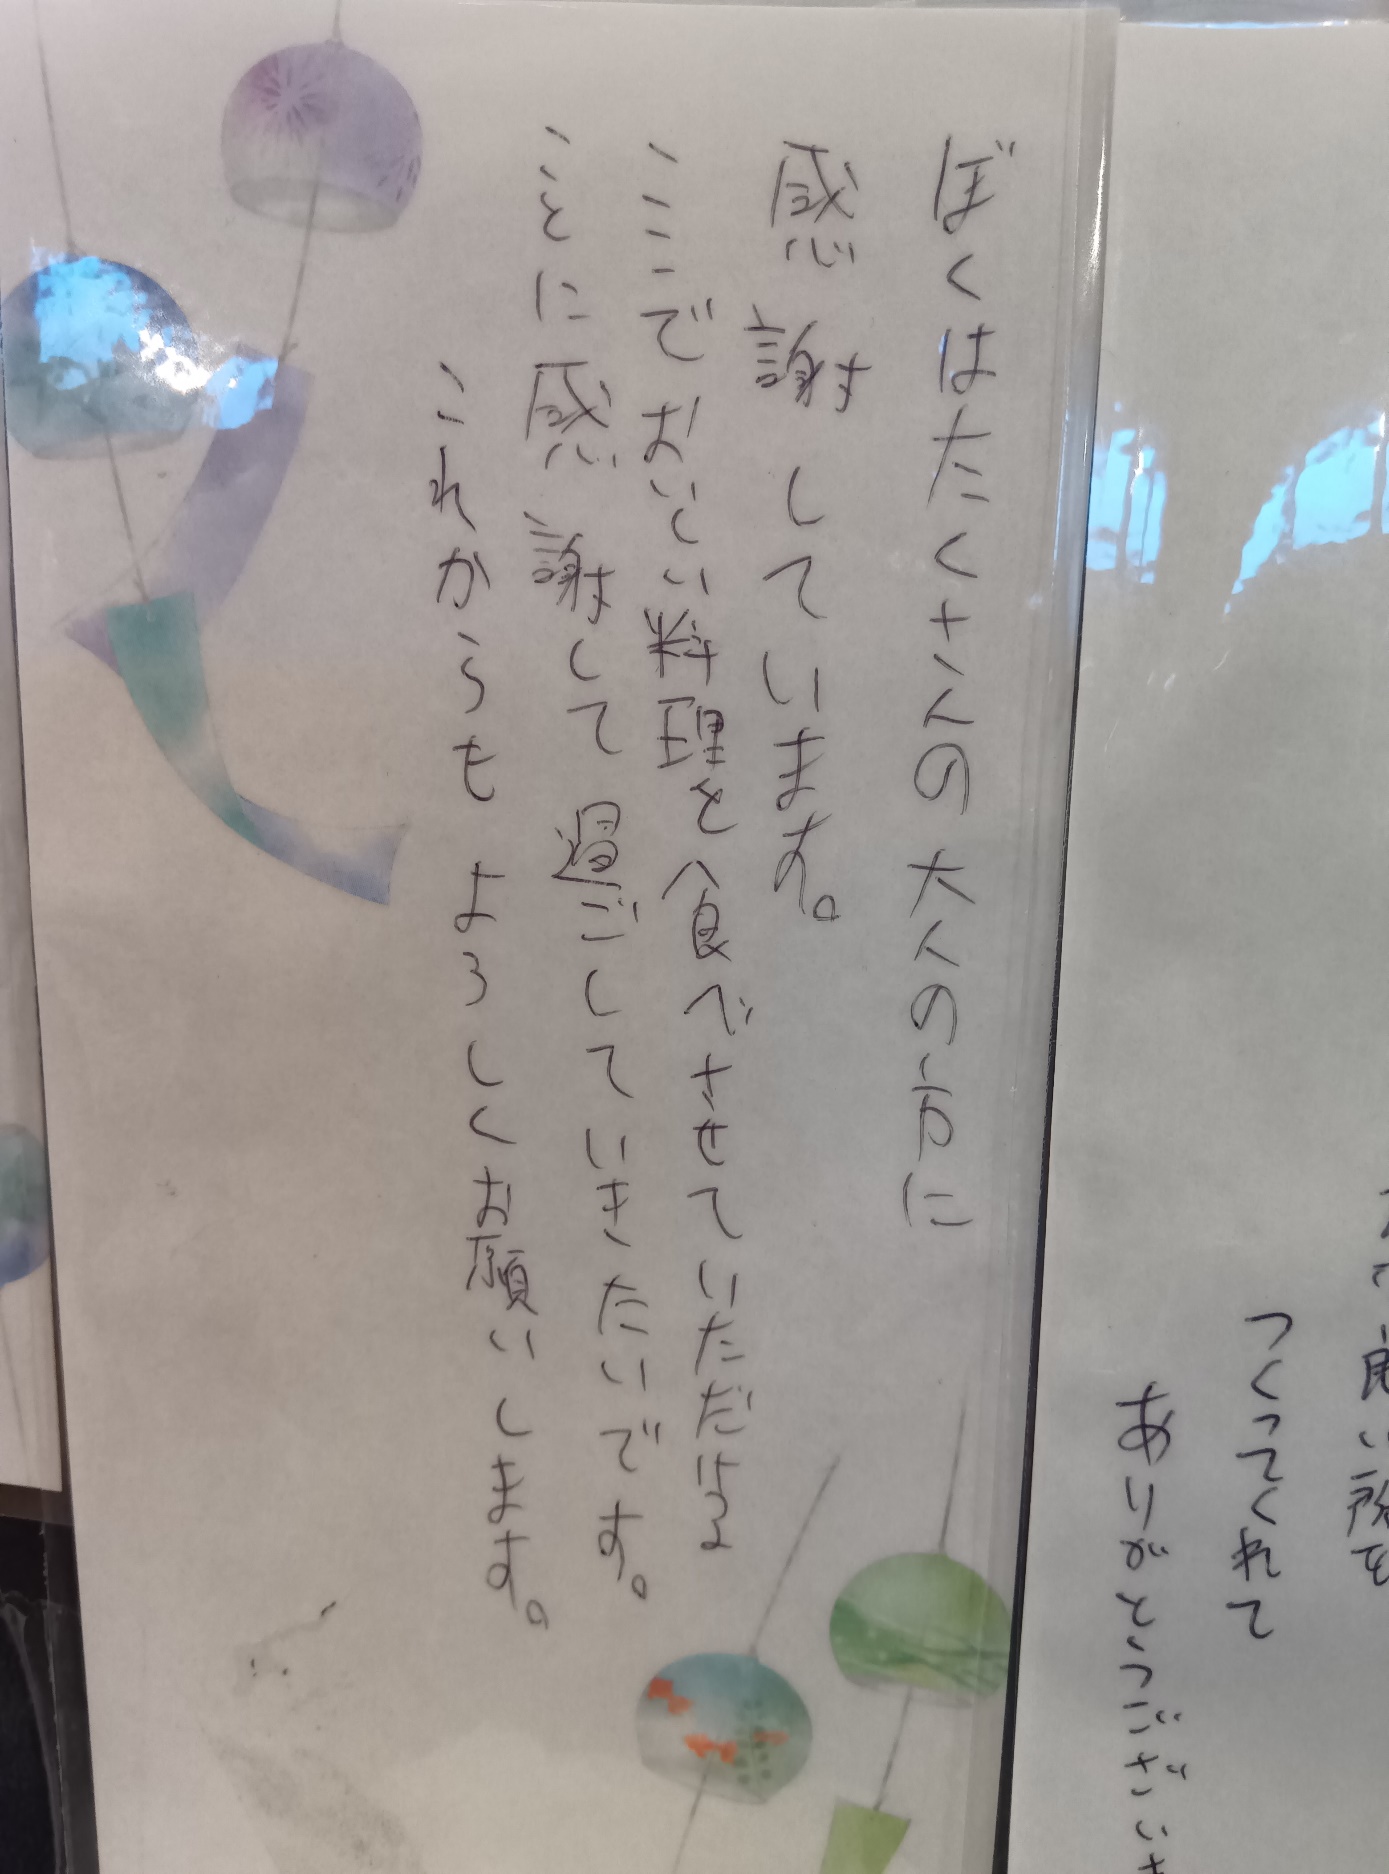 良い所を
つくってくれて
ありがとうござい
ぼくはたくさんの大人の方に
感謝しています。
ここでおいしい料理を食べさせていただける
ことに感謝して過ごしていきたいです。
これからもよろしくお願いします。